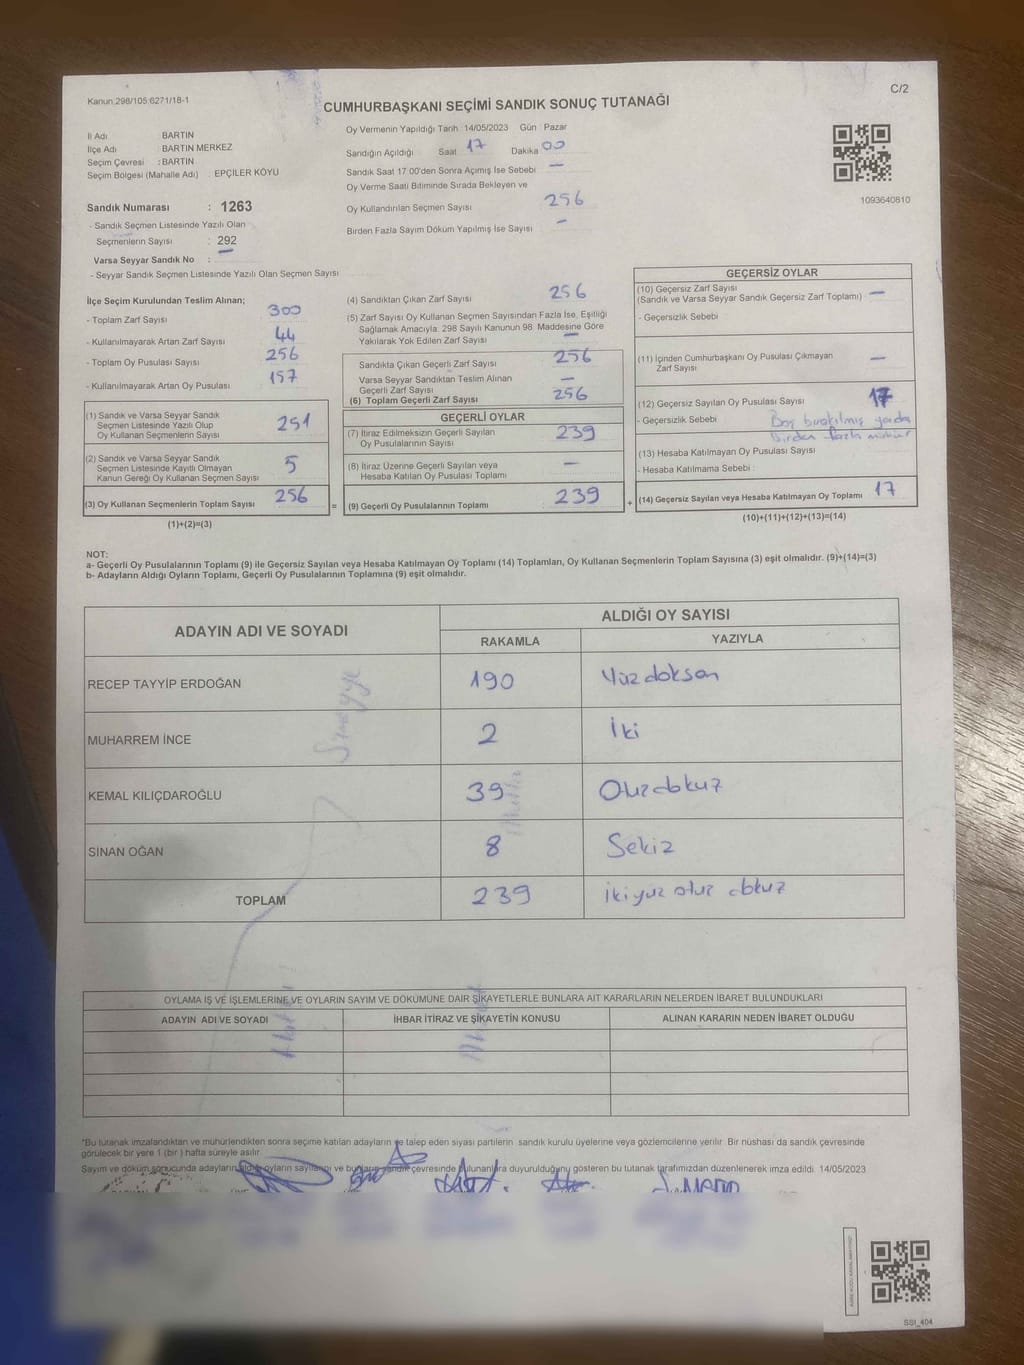 Kanun 298/105 6271/18-1
C/2
CUMHURBAŞKANI SEÇİMİ SANDIK SONUÇ TUTANAĞI
İl Adı BARTIN
İlçe Adı BARTIN MERKEZ
Seçim Çevresi : BARTIN
Seçim Bölgesi (Mahalle Adı) EPÇİLER KÖYÜ
Sandık Numarası : 1263
- Sandık Seçmen Listesinde Yazılı Olan
Seçmenlerin Sayısı : 292
Varsa Seyyar Sandık No :
- Seyyar Sandık Seçmen Listesinde Yazılı Olan Seçmen Sayısı
Oy Vermenin Yapıldığı Tarih 14/05/2023 Gün Pazar
Sandığın Açıldığı Saat 17 Dakika 00
Sandık Saat 17.00'den Sonra Açımış İse Sebebi —
Oy Verme Saati Bitiminde Sırada Bekleyen ve
Oy Kullandırılan Seçmen Sayısı 256
Birden Fazla Sayım Döküm Yapılmış İse Sayısı —
1093640810
İlçe Seçim Kurulundan Teslim Alınan;
- Toplam Zarf Sayısı 300
- Kullanılmayarak Artan Zarf Sayısı 44
- Toplam Oy Pusulası Sayısı 256
- Kullanılmayarak Artan Oy Pusulası 157
(1) Sandık ve Varsa Seyyar Sandık
Seçmen Listesinde Yazılı Olup
Oy Kullanan Seçmenlerin Sayısı 251
(2) Sandık ve Varsa Seyyar Sandık
Seçmen Listesinde Kayıtlı Olmayan
Kanun Gereği Oy Kullanan Seçmen Sayısı 5
(3) Oy Kullanan Seçmenlerin Toplam Sayısı 256
(1)+(2)=(3)
(4) Sandıktan Çıkan Zarf Sayısı 256
(5) Zarf Sayısı Oy Kullanan Seçmen Sayısından Fazla İse, Eşitliği
Sağlamak Amacıyla 298 Sayılı Kanunun 98. Maddesine Göre
Yakılarak Yok Edilen Zarf Sayısı —
Sandıkta Çıkan Geçerli Zarf Sayısı 256
Varsa Seyyar Sandıktan Teslim Alınan
Geçerli Zarf Sayısı —
(6) Toplam Geçerli Zarf Sayısı 256
GEÇERLİ OYLAR
(7) İtiraz Edilmeksizin Geçerli Sayılan
Oy Pusulalarının Sayısı 239
(8) İtiraz Üzerine Geçerli Sayılan veya
Hesaba Katılan Oy Pusulası Toplamı —
(9) Geçerli Oy Pusulalarının Toplamı 239
= +
GEÇERSİZ OYLAR
(10) Geçersiz Zarf Sayısı —
(Sandık ve Varsa Seyyar Sandık Geçersiz Zarf Toplamı)
- Geçersizlik Sebebi
(11) İçinden Cumhurbaşkanı Oy Pusulası Çıkmayan
Zarf Sayısı —
(12) Geçersiz Sayılan Oy Pusulası Sayısı 17
- Geçersizlik Sebebi Boş bırakılmış yada
birden fazla mühür
(13) Hesaba Katılmayan Oy Pusulası Sayısı
- Hesaba Katılmama Sebebi :
(14) Geçersiz Sayılan veya Hesaba Katılmayan Oy Toplamı 17
(10)+(11)+(12)+(13)=(14)
NOT:
a- Geçerli Oy Pusulalarının Toplamı (9) ile Geçersiz Sayılan veya Hesaba Katılmayan Oy Toplamı (14) Toplamları, Oy Kullanan Seçmenlerin Toplam Sayısına (3) eşit olmalıdır. (9)+(14)=(3)
b- Adayların Aldığı Oyların Toplamı, Geçerli Oy Pusulalarının Toplamına (9) eşit olmalıdır.
ADAYIN ADI VE SOYADI
ALDIĞI OY SAYISI
RAKAMLA YAZIYLA
RECEP TAYYİP ERDOĞAN 190 Yüzdoksan
MUHARREM İNCE 2 İki
KEMAL KILIÇDAROĞLU 39 Otuzdokuz
SİNAN OĞAN 8 Sekiz
TOPLAM 239 ikiyüz otuz dokuz
OYLAMA İŞ VE İŞLEMLERİNE VE OYLARIN SAYIM VE DÖKÜMÜNE DAİR ŞİKAYETLERLE BUNLARA AİT KARARLARIN NELERDEN İBARET BULUNDUKLARI
ADAYIN ADI VE SOYADI İHBAR İTİRAZ VE ŞİKAYETİN KONUSU ALINAN KARARIN NEDEN İBARET OLDUĞU
*Bu tutanak imzalandıktan ve mühürlendikten sonra seçime katılan adayların ve talep eden siyasi partilerin sandık kurulu üyelerine veya gözlemcilerine verilir. Bir nüshası da sandık çevresinde
görülecek bir yere 1 (bir) hafta süreyle asılır
Sayım ve döküm sonucunda adayların aldığı oyların sayılarını ve bunların sandık çevresinde bulunanlara duyurulduğunu gösteren bu tutanak tarafımızdan düzenlenerek imza edildi. 14/05/2023
SSI_404